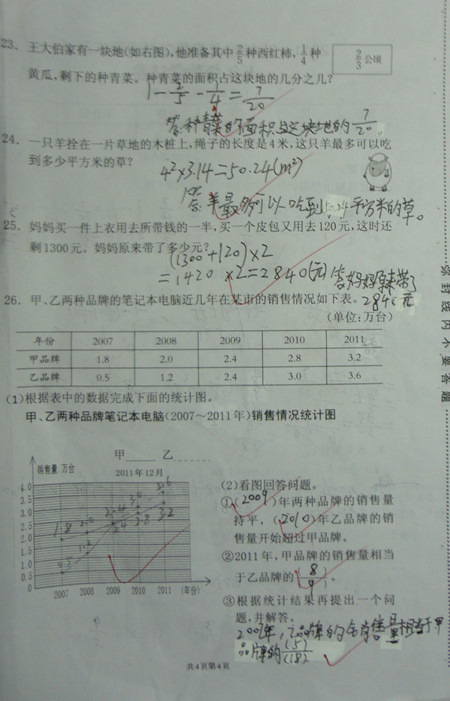 23. 王大伯家有一块地(如右图),他准备其中2/5种西红柿,1/4种
2/3公顷
黄瓜,剩下的种青菜。种青菜的面积占这块地的几分之几?
1-2/5-1/4=7/20
答:种青菜的面积占这块地的7/20。
24. 一只羊拴在一片草地的木桩上,绳子的长度是4米,这只羊最多可以吃
到多少平方米的草?
4²×3.14=50.24(m²)
答:羊最多可以吃到50.24平方米的草。
25. 妈妈买一件上衣用去所带钱的一半,买一个皮包又用去120元,这时还
剩1300元。妈妈原来带了多少元?
(1300+120)×2
=1420×2=2840(元)
答:妈妈原来带了
2840元
26. 甲、乙两种品牌的笔记本电脑近几年在某市的销售情况如下表。
(单位:万台)
年份 2007 2008 2009 2010 2011
甲品牌 1.8 2.0 2.4 2.8 3.2
乙品牌 0.5 1.2 2.4 3.0 3.6
(1)根据表中的数据完成下面的统计图。
甲、乙两种品牌笔记本电脑(2007~2011年)销售情况统计图
甲 乙
销售量 万台
2011年12月
4.0
3.5
3.0
2.5
2.0
1.5
1.0
0.5
0
2007 2008 2009 2010 2011 (年份)
(2)看图回答问题。
①(2009)年两种品牌的销售量
持平,(2010)年乙品牌的销
售量开始超过甲品牌。
②2011年,甲品牌的销售量相当
于乙品牌的(8)/(9)。
③根据统计结果再提出一个问
题,并解答。
2007年,乙品牌的销售量相当于甲
品牌的(5)/(18)
共4页第4页
弥封线内不要答题